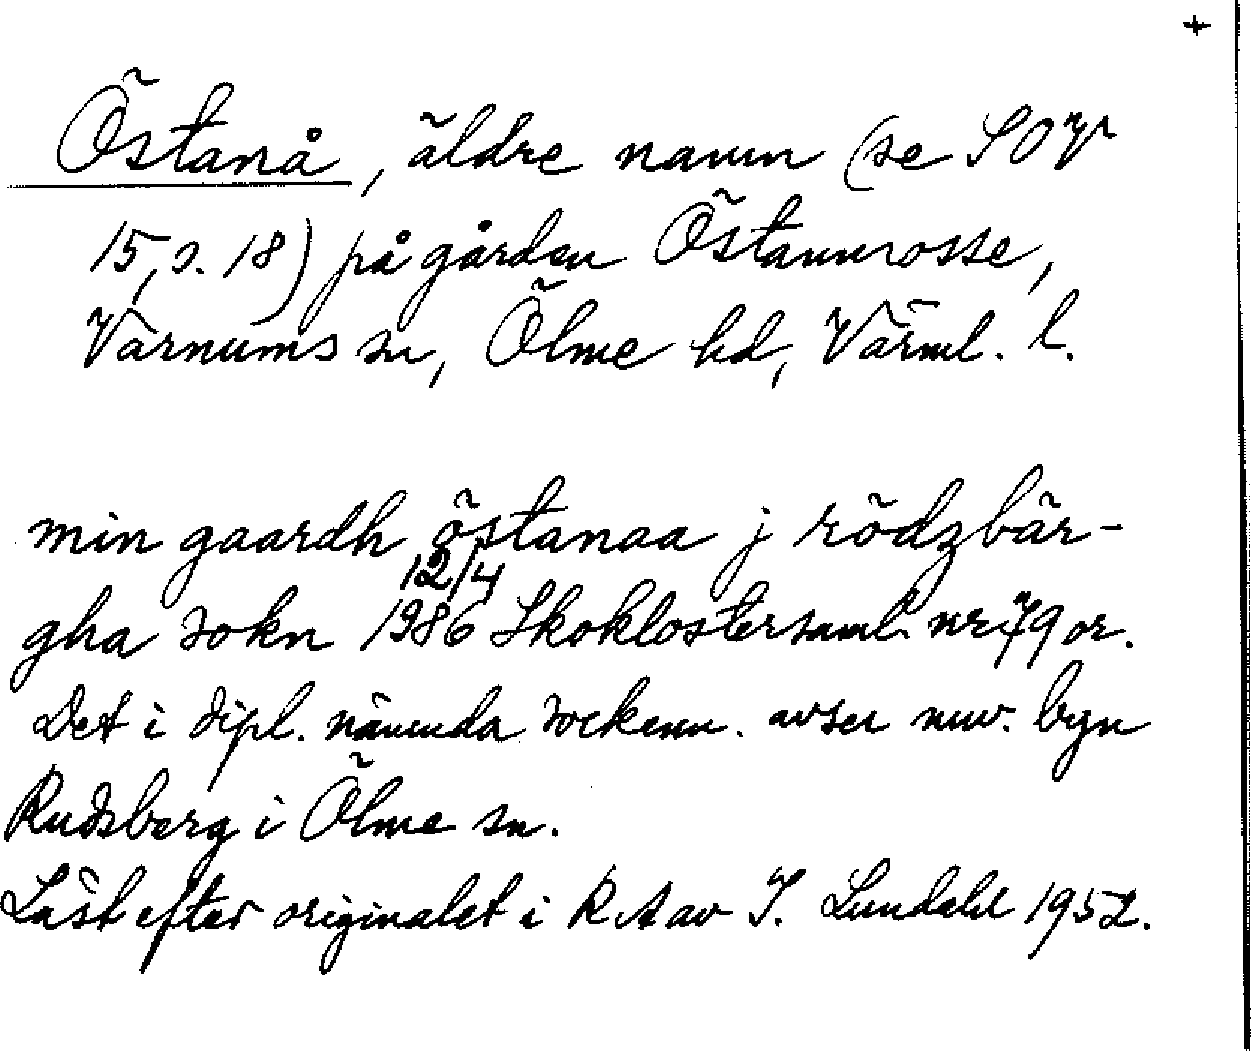 +
Östanå, äldre namn (se SOV
15, s. 18) på gården Östannrosse,
Varnums sn, Ölme hd, Värml. l.
min gaardh östanaa j rödzbär-
gha sokn 12/4 1986 Skoklostersaml. nr 79 or.
Det i dipl. nämnda sockenn. avser nuv. byn
Rudsberg i Ölme sn.
Läst efter originalet i RA av I. Lundahl 1952.